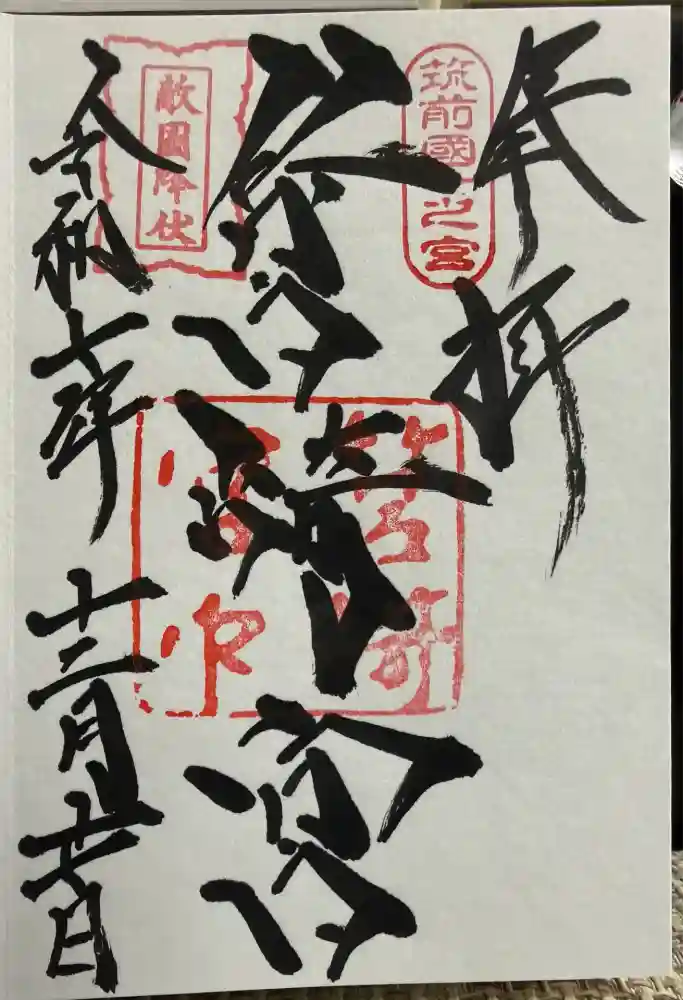 奉拝
筑前國一之宮
筥崎宮
筥崎宮印
敵國降伏
令和七年十二月日